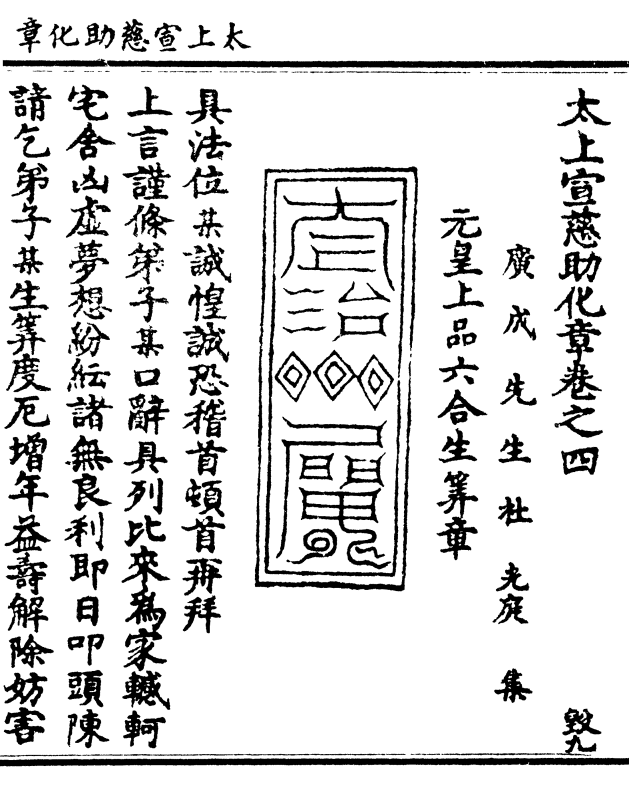 太上宣慈助化章
太上宣慈助化章卷之四
毀九
廣成先生杜光庭集
元皇上品六合生筭章
具法位某誠惶誠恐稽首頓首再拜
上言謹條弟子某口辭具列比來為家轗軻
宅舍凶虛夢想紛紜諸無良利即日叩頭陳
請乞弟子某生筭度厄增年益壽解除妨害